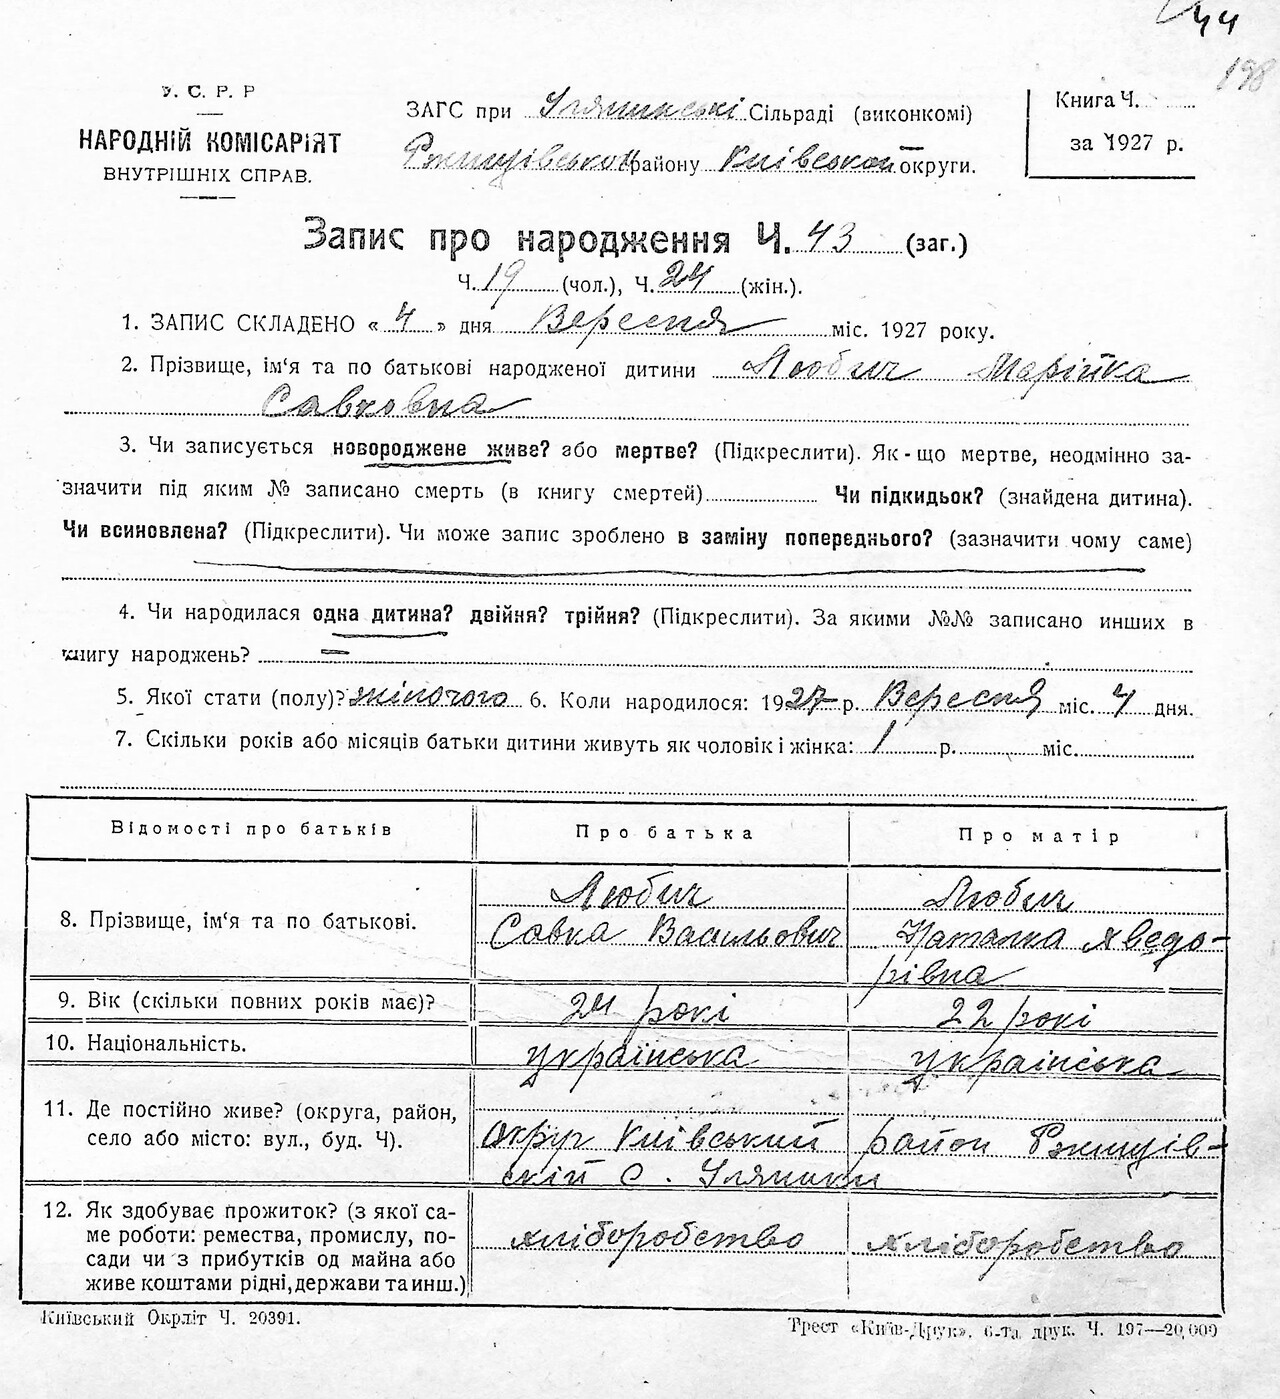 44
198
У. С. Р. Р
НАРОДНІЙ КОМІСАРІЯТ
ВНУТРІШНІХ СПРАВ.
ЗАГС при Улянинські Сільраді (виконкомі)
Ржищівської району Київської округи.
Книга Ч.
за 1927 р.
Запис про народження Ч. 43 (заг.)
Ч. 19 (чол.), Ч. 24 (жін.).
1. ЗАПИС СКЛАДЕНО « 4 » дня Вересня міс. 1927 року.
2. Прізвище, ім‘я та по батькові народженої дитини Любич Марійка
Савковна
3. Чи записується новороджене живе? або мертве? (Підкреслити). Як-що мертве, неодмінно за-
значити під яким № записано смерть (в книгу смертей) Чи підкидьок? (знайдена дитина).
Чи всиновлена? (Підкреслити). Чи може запис зроблено в заміну попереднього? (зазначити чому саме)
4. Чи народилася одна дитина? двійня? трійня? (Підкреслити). За якими №№ записано инших в
книгу народжень? —
5. Якої стати (полу)? жіночого 6. Коли народилося: 1927 р. Вересня міс. 4 дня.
7. Скільки років або місяців батьки дитини живуть як чоловік і жінка: 1 р. міс.
Відомості про батьків Про батька Про матір
8. Прізвище, ім‘я та по батькові.
Любич
Савка Васильович
Любич
Наталка Хведо-
рівна
9. Вік (скільки повних років має)? 24 рокі 22 рокі
10. Національність. українська українська
11. Де постійно живе? (округа, район,
село або місто: вул., буд. Ч).
округ Київський район Ржищів-
скій С. Уляники
12. Як здобуває прожиток? (з якої са-
ме роботи: ремества, промислу, по-
сади чи з прибутків од майна або
живе коштами рідні, держави та инш.)
хліборобство хліборобство
Київський Окрліт Ч. 20391.
Трест «Київ-Друк», 6-та друк. Ч. 197—20,000